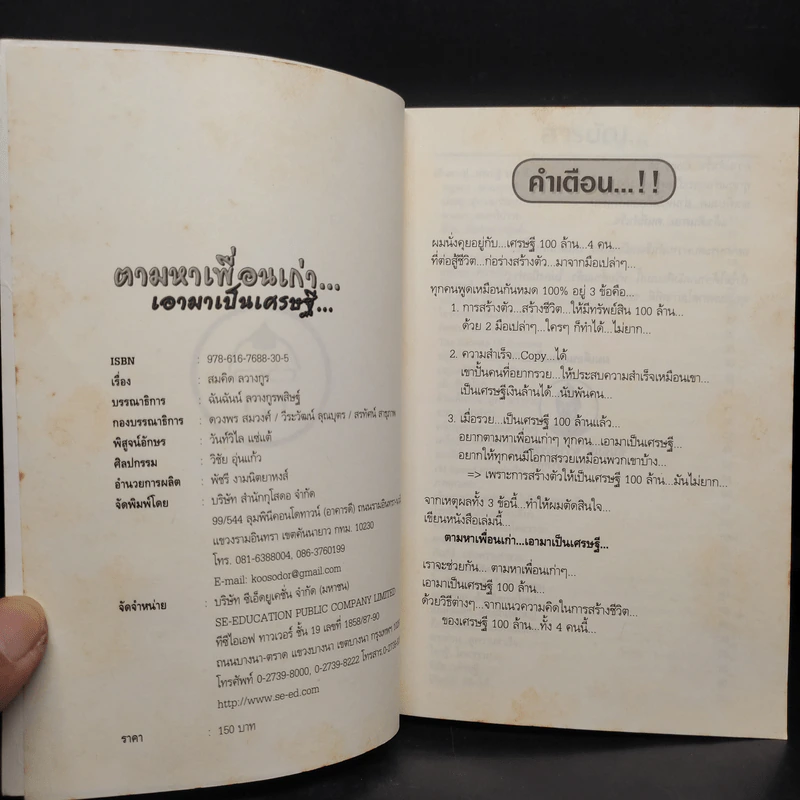 ตามหาเพื่อนเก่า...
เอามาเป็นเศรษฐี...
ISBN : 978-616-7688-30-5
เรื่อง : สมคิด ลวางกูร
บรรณาธิการ : ฉันฉันน์ ลวางกูรพสิษฐ์
กองบรรณาธิการ : ดวงพร สมวงศ์ / วีระวัฒน์ ลุณบุตร / สรทัศน์ สาธุภาพ
พิสูจน์อักษร : วันท์วิไล แซ่แต้
ศิลปกรรม : วิชัย อุ่นแก้ว
อำนวยการผลิต : พัชรี งามนิตยาหงส์
จัดพิมพ์โดย : บริษัท สำนักกูโสดอ จำกัด
99/544 ลุมพินีคอนโดทาวน์ (อาคารดี) ถนนรามอินทรา-
แขวงรามอินทรา เขตคันนายาว กทม. 10230
โทร. 081-6388004, 086-3760199
E-mail: koosodor@gmail.com
จัดจำหน่าย : บริษัท ซีเอ็ดยูเคชั่น จำกัด (มหาชน)
SE-EDUCATION PUBLIC COMPANY LIMITED
ทีซีไอเอฟ ทาวเวอร์ ชั้น 19 เลขที่ 1858/87-90
ถนนบางนา-ตราด แขวงบางนา เขตบางนา กรุงเทพฯ
โทรศัพท์ 0-2739-8000, 0-2739-8222 โทรสาร
http://www.se-ed.com
ราคา : 150 บาท
คำเตือน...!!
ผมนั่งคุยอยู่กับ...เศรษฐี 100 ล้าน...4 คน...
ที่ต่อสู้ชีวิต...ก่อร่างสร้างตัว...มาจากมือเปล่าๆ...
ทุกคนพูดเหมือนกันหมด 100% อยู่ 3 ข้อคือ...
1. การสร้างตัว...สร้างชีวิต...ให้มีทรัพย์สิน 100 ล้าน...
ด้วย 2 มือเปล่าๆ...ใครๆ ก็ทำได้...ไม่ยาก...
2. ความสำเร็จ...Copy...ได้
เขาปั้นคนที่อยากรวย...ให้ประสบความสำเร็จเหมือนเขา...
เป็นเศรษฐีเงินล้านได้...นับพันคน...
3. เมื่อรวย...เป็นเศรษฐี 100 ล้านแล้ว...
อยากตามหาเพื่อนเก่าๆ ทุกคน...เอามาเป็นเศรษฐี...
อยากให้ทุกคนมีโอกาสรวยเหมือนพวกเขาบ้าง...
=> เพราะการสร้างตัวให้เป็นเศรษฐี 100 ล้าน...มันไม่ยาก...
จากเหตุผลทั้ง 3 ข้อนี้...ทำให้ผมตัดสินใจ...
เขียนหนังสือเล่มนี้...
ตามหาเพื่อนเก่า...เอามาเป็นเศรษฐี...
เราจะช่วยกัน... ตามหาเพื่อนเก่าๆ...
เอามาเป็นเศรษฐี 100 ล้าน...
ด้วยวิธีต่างๆ...จากแนวความคิดในการสร้างชีวิต...
ของเศรษฐี 100 ล้าน...ทั้ง 4 คนนี้...